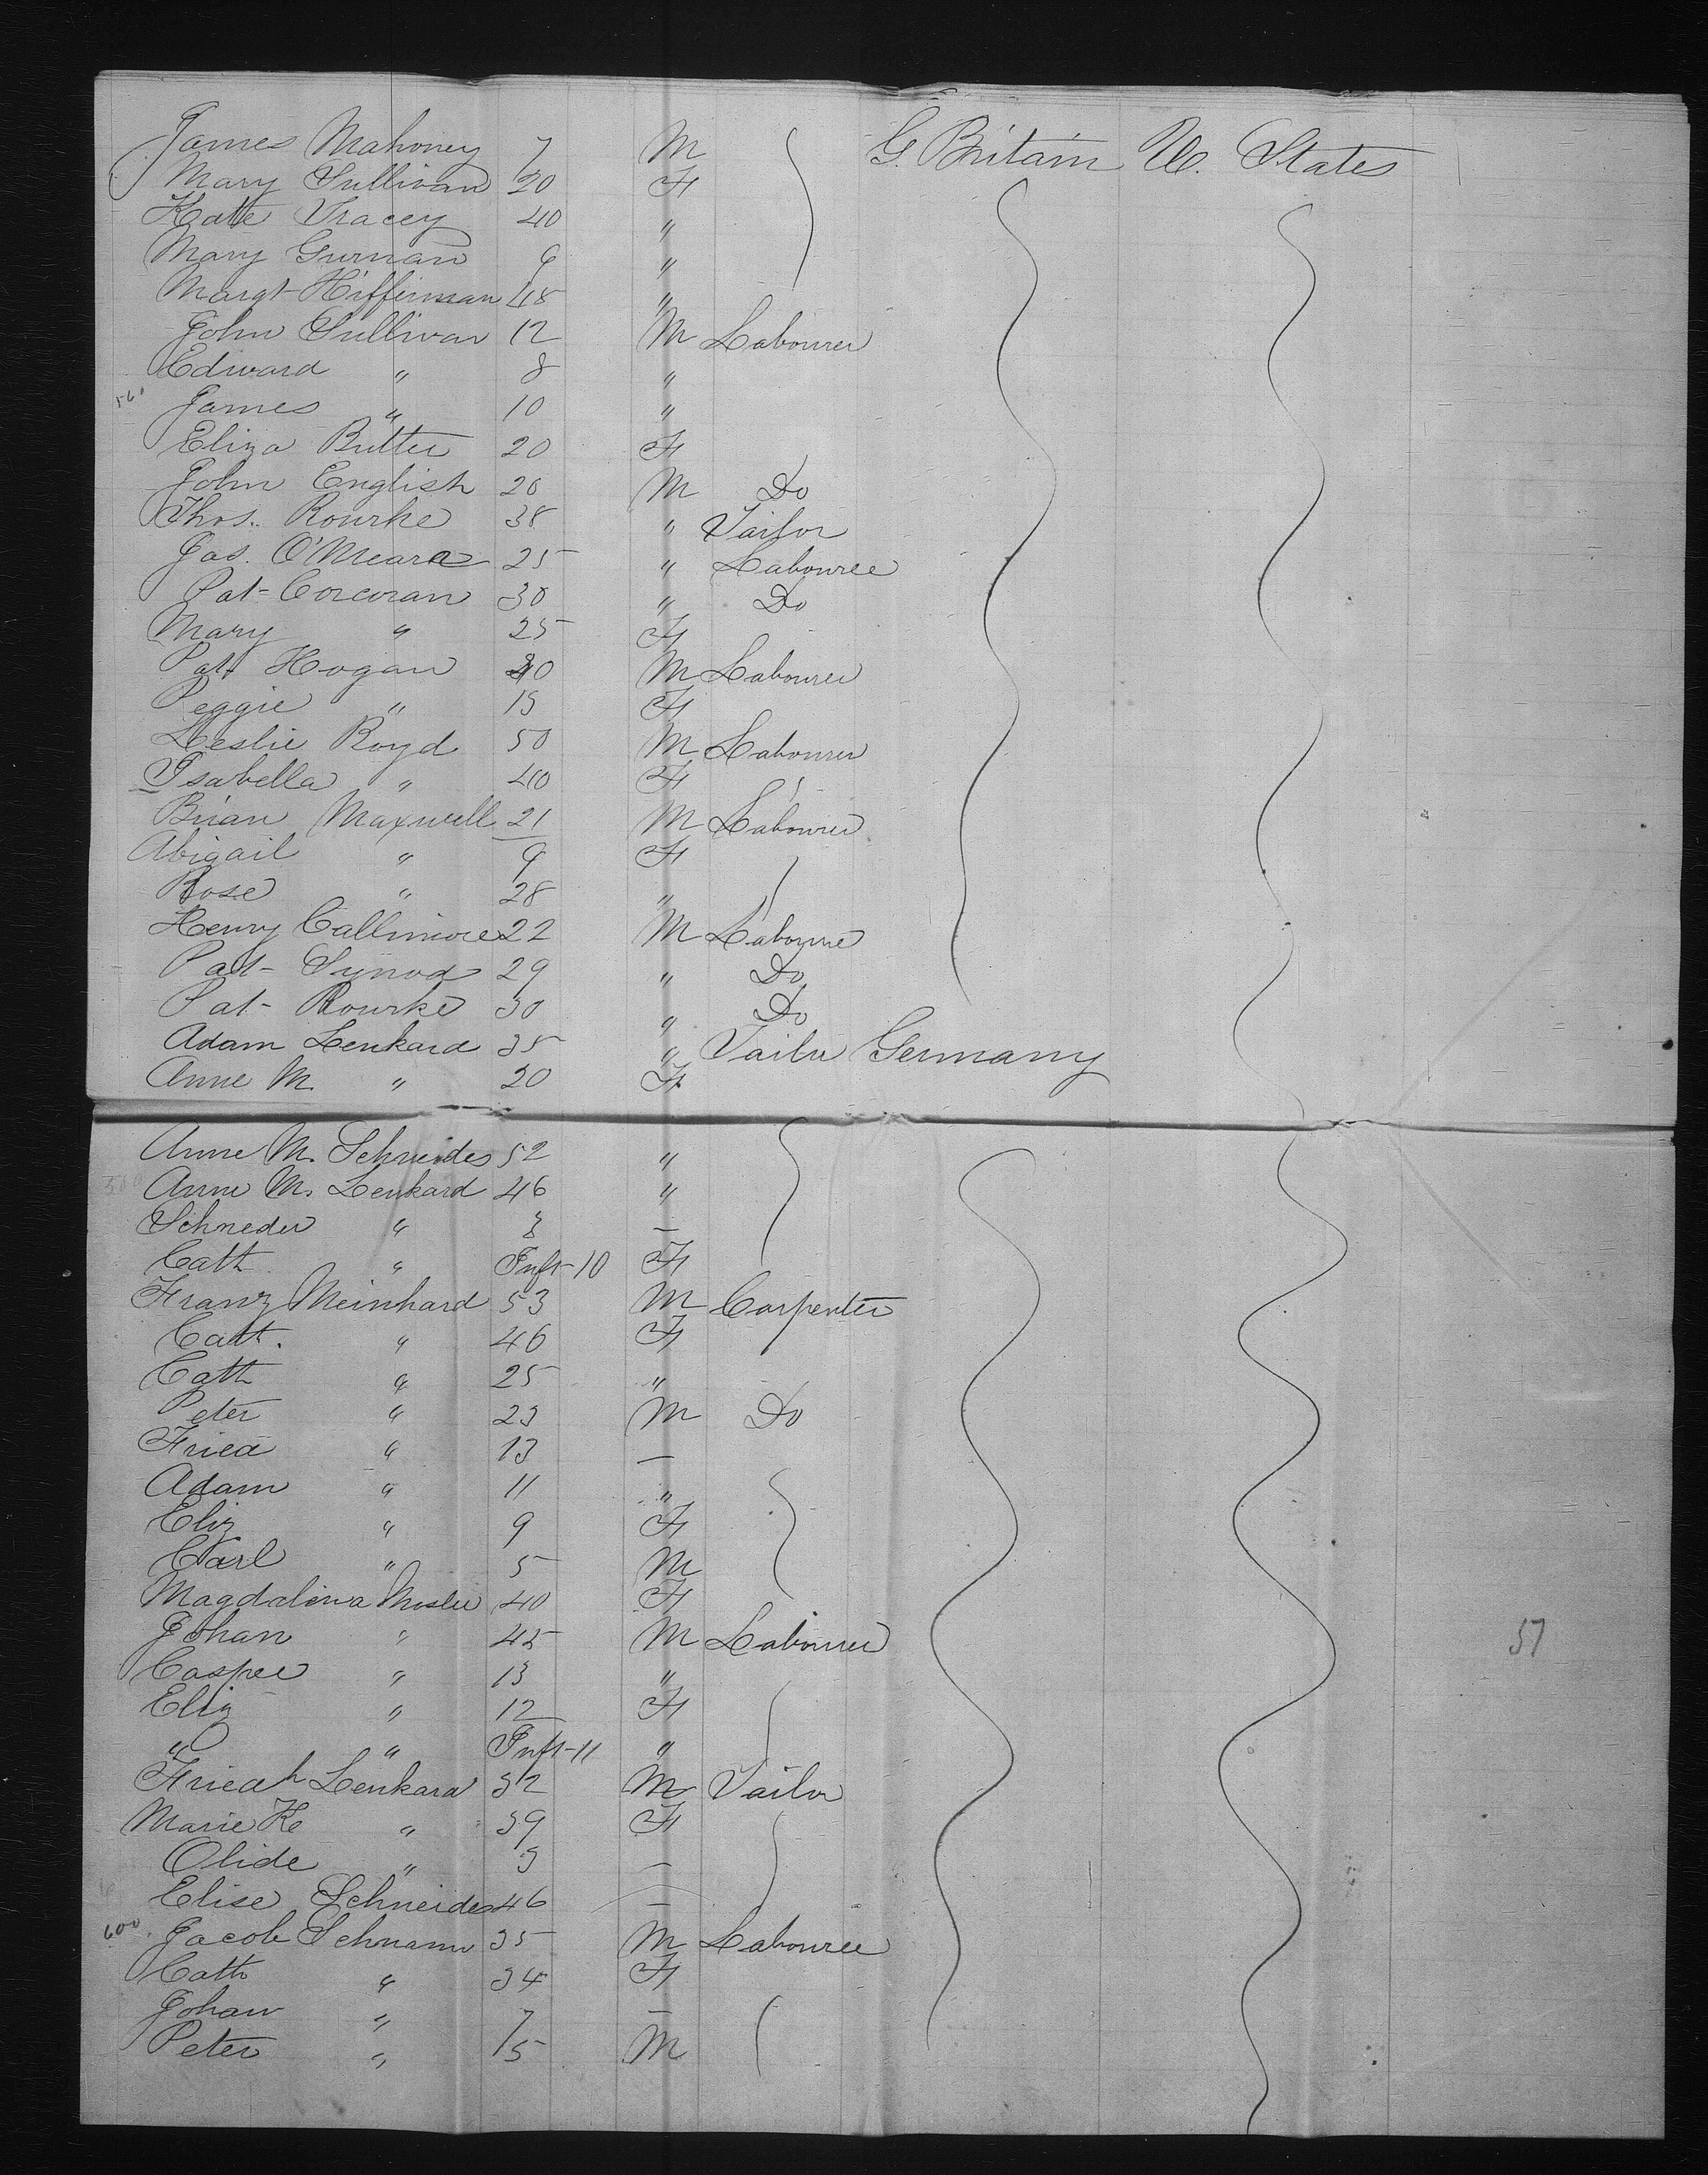 James Mahoney 7 M G. Britain U. States
Mary Sullivan 20 F
Kate Tracey 40 "
Mary Gurnan 9 "
Margt Hifferman 48 "
John Sullivan 12 M Labourer
Edward " 8 "
560 James " 10 "
Eliza Butter 20 F
John English 20 M Do
Thos. Rourke 38 " Tailor
Jas. O'Meara 25 " Labourer
Pat Corcoran 30 " Do
Mary " 25 F
Pat Hogan 40 M Labourer
Peggie " 15 F
Leslie Boyd 50 M Labourer
Isabella " 40 F
Brian Maxwell 21 M Labourer
Abigail " 9 F
Rose " 28 "
Henry Callimore 22 M Labourer
Pat Synod 29 " Do
Pat Rourke 30 " Do
Adam Lenkard 35 " Tailor Germany
Anne M. " 20 F
Anne M. Schneider 52 "
580 Anne M. Lenkard 46 "
Schneder " 3 —
Cath " Inft-10 F
Franz Meinhard 53 M Carpenter
Cath. " 46 F
Cath " 25 "
Peter " 23 M Do
Fried " 13 —
Adam " 11 "
Eliz " 9 F
Karl " 5 M
Magdalena 40 F
Johan " 45 M Labourer
Casper " 13 "
Eliz " 12 F
" " Inft-11 "
Friedh Lenkard 32 M Tailor
Marie K " 39 F
Olide " 3 —
Elise Schneider 46 —
600 Jacob Schnann 35 M Labourer
Cath " 34 F
Johan " 7 —
Peter " 5 M
57